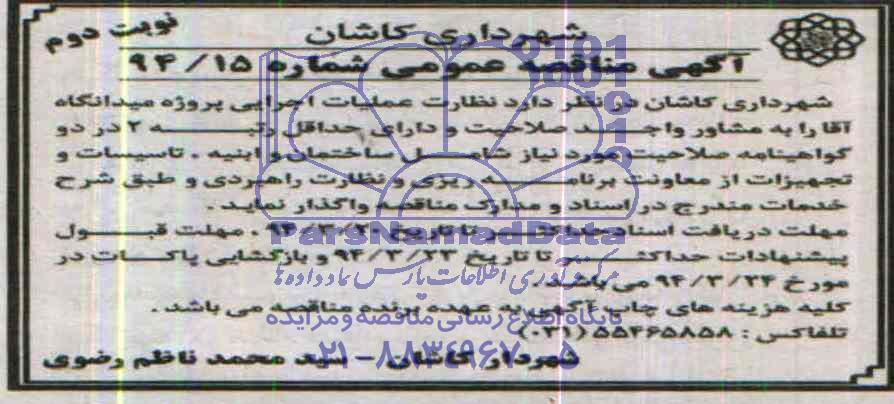 نوبت دوم
شهرداری کاشان
آگهی مناقصه عمومی شماره ۹۴/۱۵
شهرداری کاشان در نظر دارد نظارت عملیات اجرایی پروژه میدانگاه
آقا را به مشاور واجد صلاحیت و دارای حداقل رتبه ۲ در دو
گواهینامه صلاحیت مورد نیاز شامل ساختمان و ابنیه ، تاسیسات و
تجهیزات از معاونت برنامه ریزی و نظارت راهبردی و طبق شرح
خدمات مندرج در اسناد و مدارک مناقصه واگذار نماید .
مهلت دریافت اسناد حداکثر تا تاریخ ۹۴/۳/۲۰ ، مهلت قبول
پیشنهادات حداکثر تا تاریخ ۹۴/۳/۲۳ و بازگشایی پاکات در
مورخ ۹۴/۳/۲۴ می باشد .
کلیه هزینه های چاپ آگهی به عهده برنده مناقصه می باشد .
تلفاکس : ۵۵۴۶۵۸۵۸ (۰۳۱)
شهردار کاشان - سید محمد ناظم رضوی
ParsNamadData
مرکز فرآوری اطلاعات پارس نماد داده ها
پایگاه اطلاع رسانی مناقصه و مزایده
۰۲۱-۸۸۳۴۹۶۷۰-۵